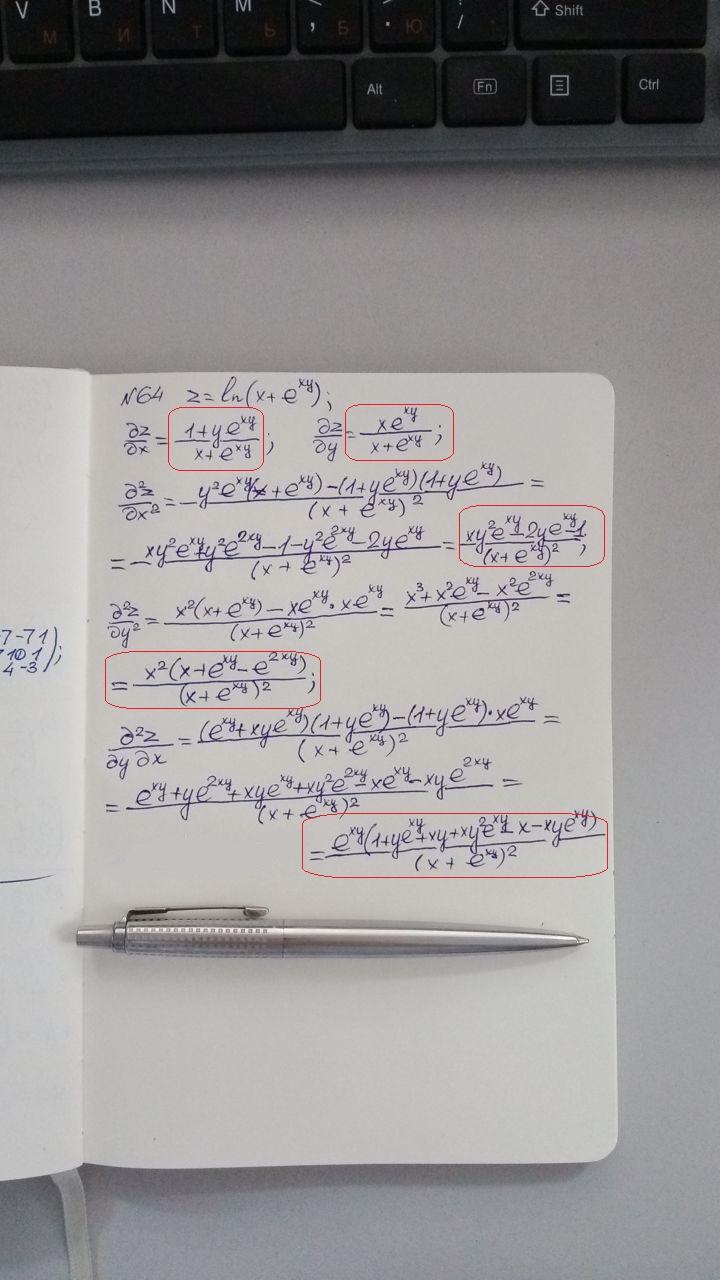 V B N M < > ? Shift
М И Т Ь , Б . Ю / .
Alt Fn Ctrl
№64 z = ln(x + e^{xy});
∂z/∂x = (1 + ye^{xy})/(x + e^{xy}); ∂z/∂y = xe^{xy}/(x + e^{xy});
∂²z/∂x² = (y²e^{xy}(x + e^{xy}) − (1 + ye^{xy})(1 + ye^{xy}))/(x + e^{xy})² =
= (xy²e^{xy} + y²e^{2xy} − 1 − y²e^{2xy} − 2ye^{xy})/(x + e^{xy})² = (xy²e^{xy} − 2ye^{xy} − 1)/(x + e^{xy})²;
∂²z/∂y² = (x²(x + e^{xy}) − xe^{xy} · xe^{xy})/(x + e^{xy})² = (x³ + x²e^{xy} − x²e^{2xy})/(x + e^{xy})² =
= x²(x + e^{xy} − e^{2xy})/(x + e^{xy})²;
∂²z/∂y∂x = ((e^{xy} + xye^{xy})(1 + ye^{xy}) − (1 + ye^{xy}) · xe^{xy})/(x + e^{xy})² =
= (e^{xy} + ye^{2xy} + xye^{xy} + xy²e^{2xy} − xe^{xy} − xye^{2xy})/(x + e^{xy})² =
= e^{xy}(1 + ye^{xy} + xy + xy²e^{xy} − x − xye^{xy})/(x + e^{xy})²
-7 -7 1
4 -3 );